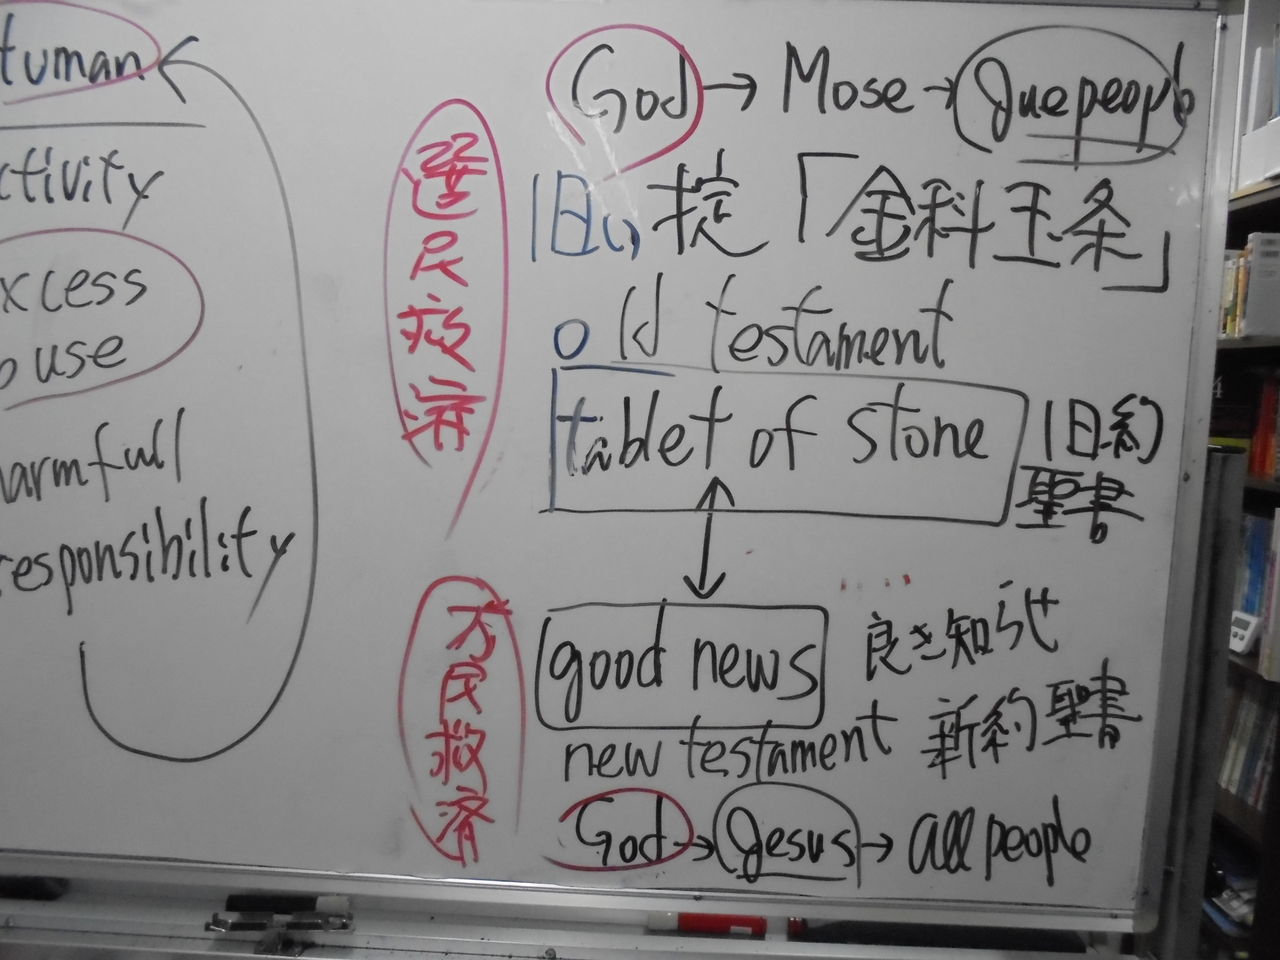 Human
ctivity
xcess
use
harmfull
responsibility
God → Mose → Jue people
選民救済
旧い 掟 「金科玉条」
old testament
tablet of stone
旧約
聖書
万民救済
good news
良き知らせ
new testament 新約聖書
God → Jesus → all people